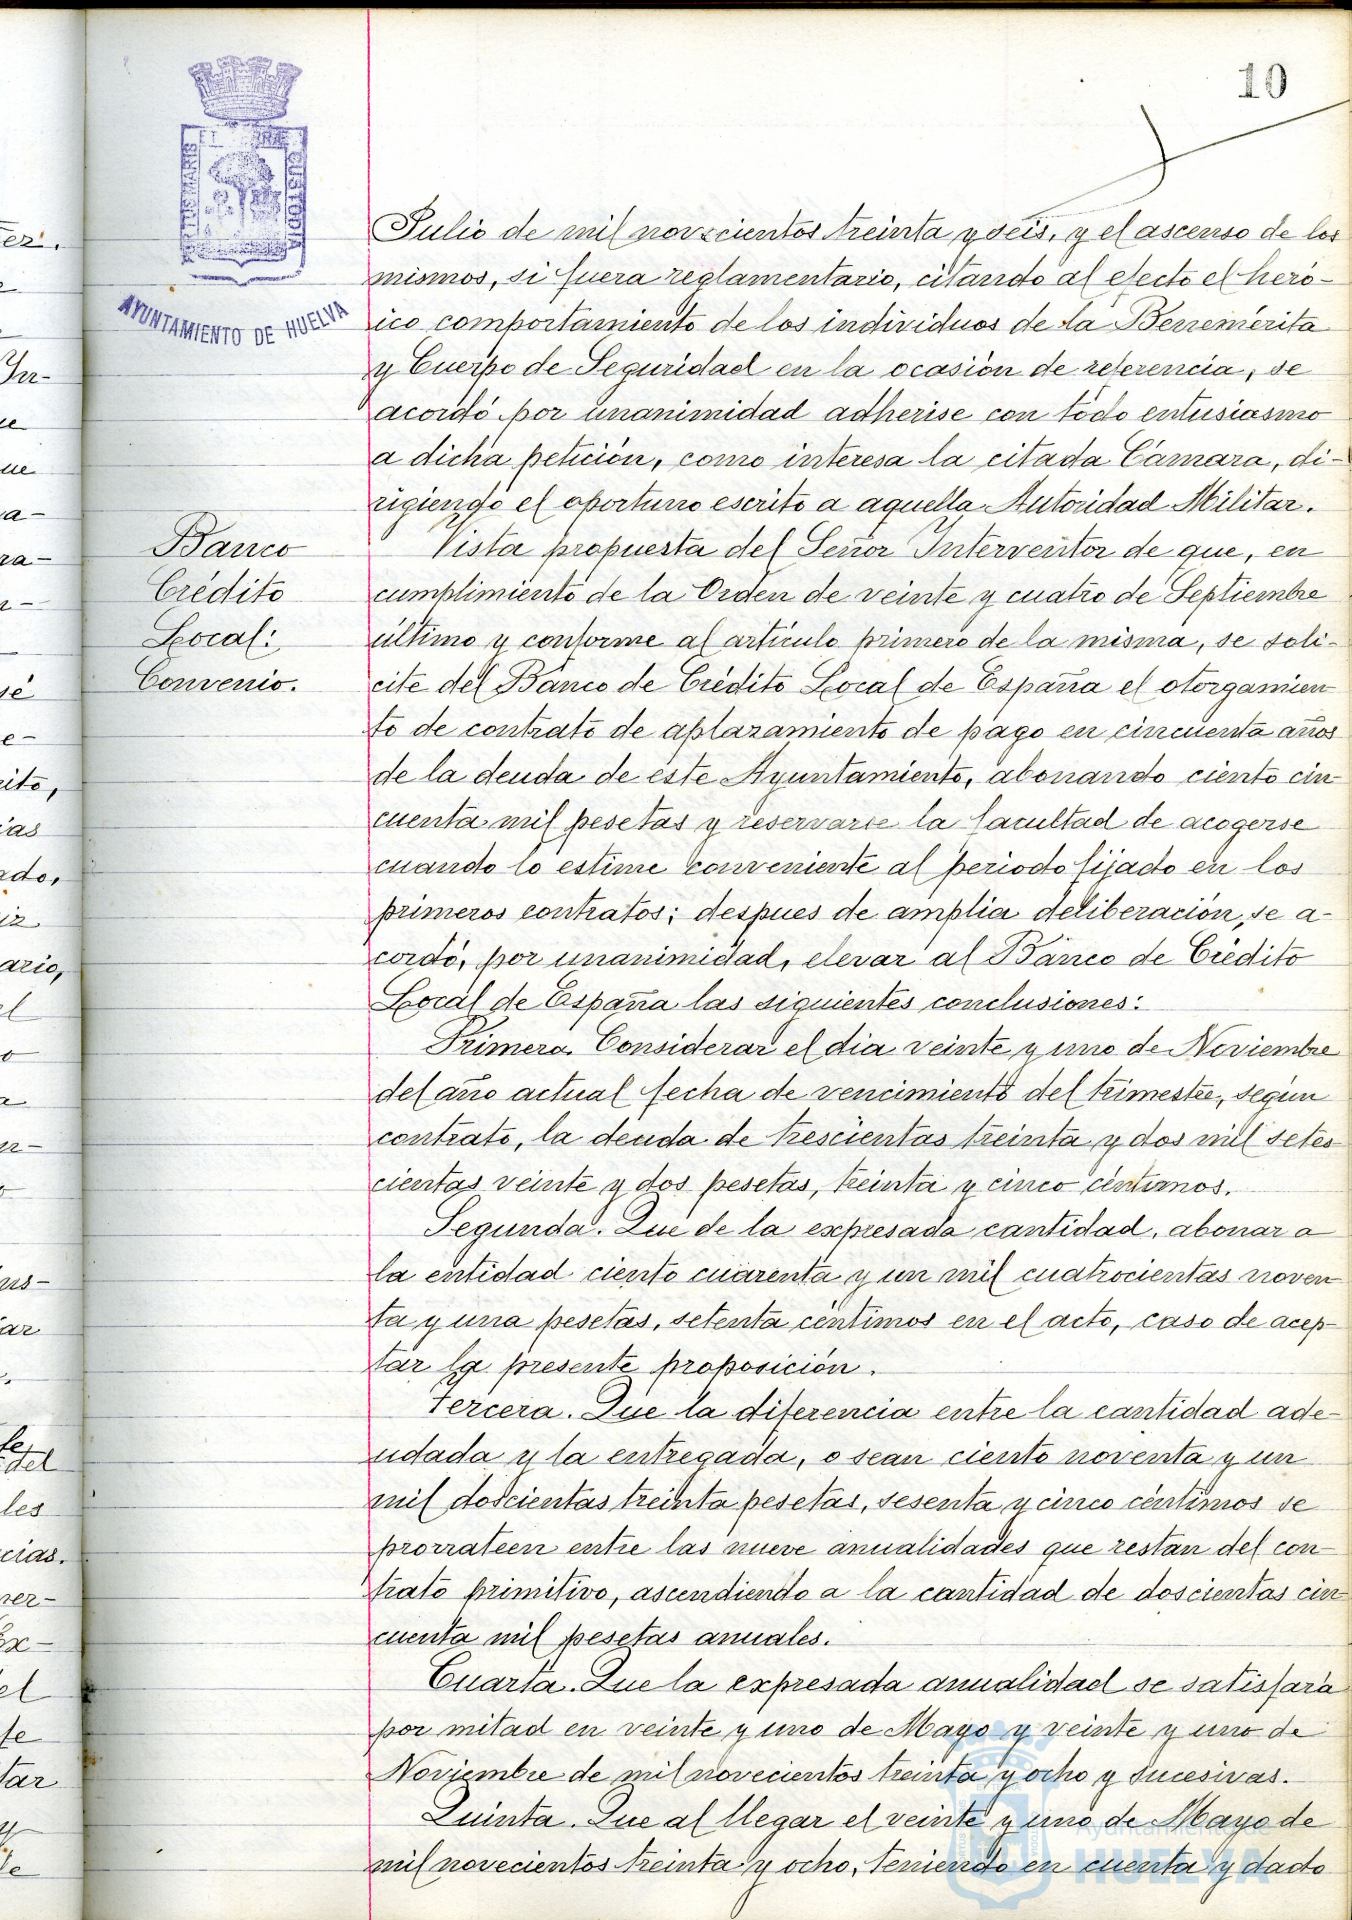 10
PORTUS MARIS ET TERRE CUSTODIA
AYUNTAMIENTO DE HUELVA
Julio de mil novecientos treinta y seis, y el ascenso de los
mismos, si fuera reglamentario, citando al efecto el heró-
ico comportamiento de los individuos de la Benemérita
y Cuerpo de Seguridad en la ocasión de referencia, se
acordó por unanimidad adherise con todo entusiasmo
a dicha petición, como interesa la citada Cámara, di-
rigiendo el oportuno escrito a aquella Autoridad Militar.
Banco
Crédito
Local:
Convenio.
Vista propuesta del Señor Interventor de que, en
cumplimiento de la Orden de veinte y cuatro de Septiembre
último y conforme al artículo primero de la misma, se soli-
cite del Banco de Crédito Local de España el otorgamien
to de contrato de aplazamiento de pago en cincuenta años
de la deuda de este Ayuntamiento, abonando ciento cin
cuenta mil pesetas y reservarse la facultad de acogerse
cuando lo estime conveniente al periodo fijado en los
primeros contratos; despues de amplia deliberación, se a-
cordó, por unanimidad, elevar al Banco de Crédito
Local de España las siguientes conclusiones:
Primera. Considerar el dia veinte y uno de Noviembre
del año actual fecha de vencimiento del trimestre, según
contrato, la deuda de trescientas treinta y dos mil setes
cientas veinte y dos pesetas, treinta y cinco céntimos.
Segunda. Que de la expresada cantidad, abonar a
la entidad ciento cuarenta y un mil cuatrocientas noven
ta y una pesetas, setenta céntimos en el acto, caso de acep-
tar la presente proposición.
Tercera. Que la diferencia entre la cantidad ade-
udada y la entregada, o sean ciento noventa y un
mil doscientas treinta pesetas, sesenta y cinco céntimos se
prorrateen entre las nueve anualidades que restan del con-
trato primitivo, ascendiendo a la cantidad de doscientas cin
cuenta mil pesetas anuales.
Cuarta. Que la expresada anualidad se satisfará
por mitad en veinte y uno de Mayo y veinte y uno de
Noviembre de mil novecientos treinta y ocho y sucesivas.
Quinta. Que al llegar el veinte y uno de Mayo de
mil novecientos treinta y ocho, teniendo en cuenta y dado
Ayuntamiento de
HUELVA